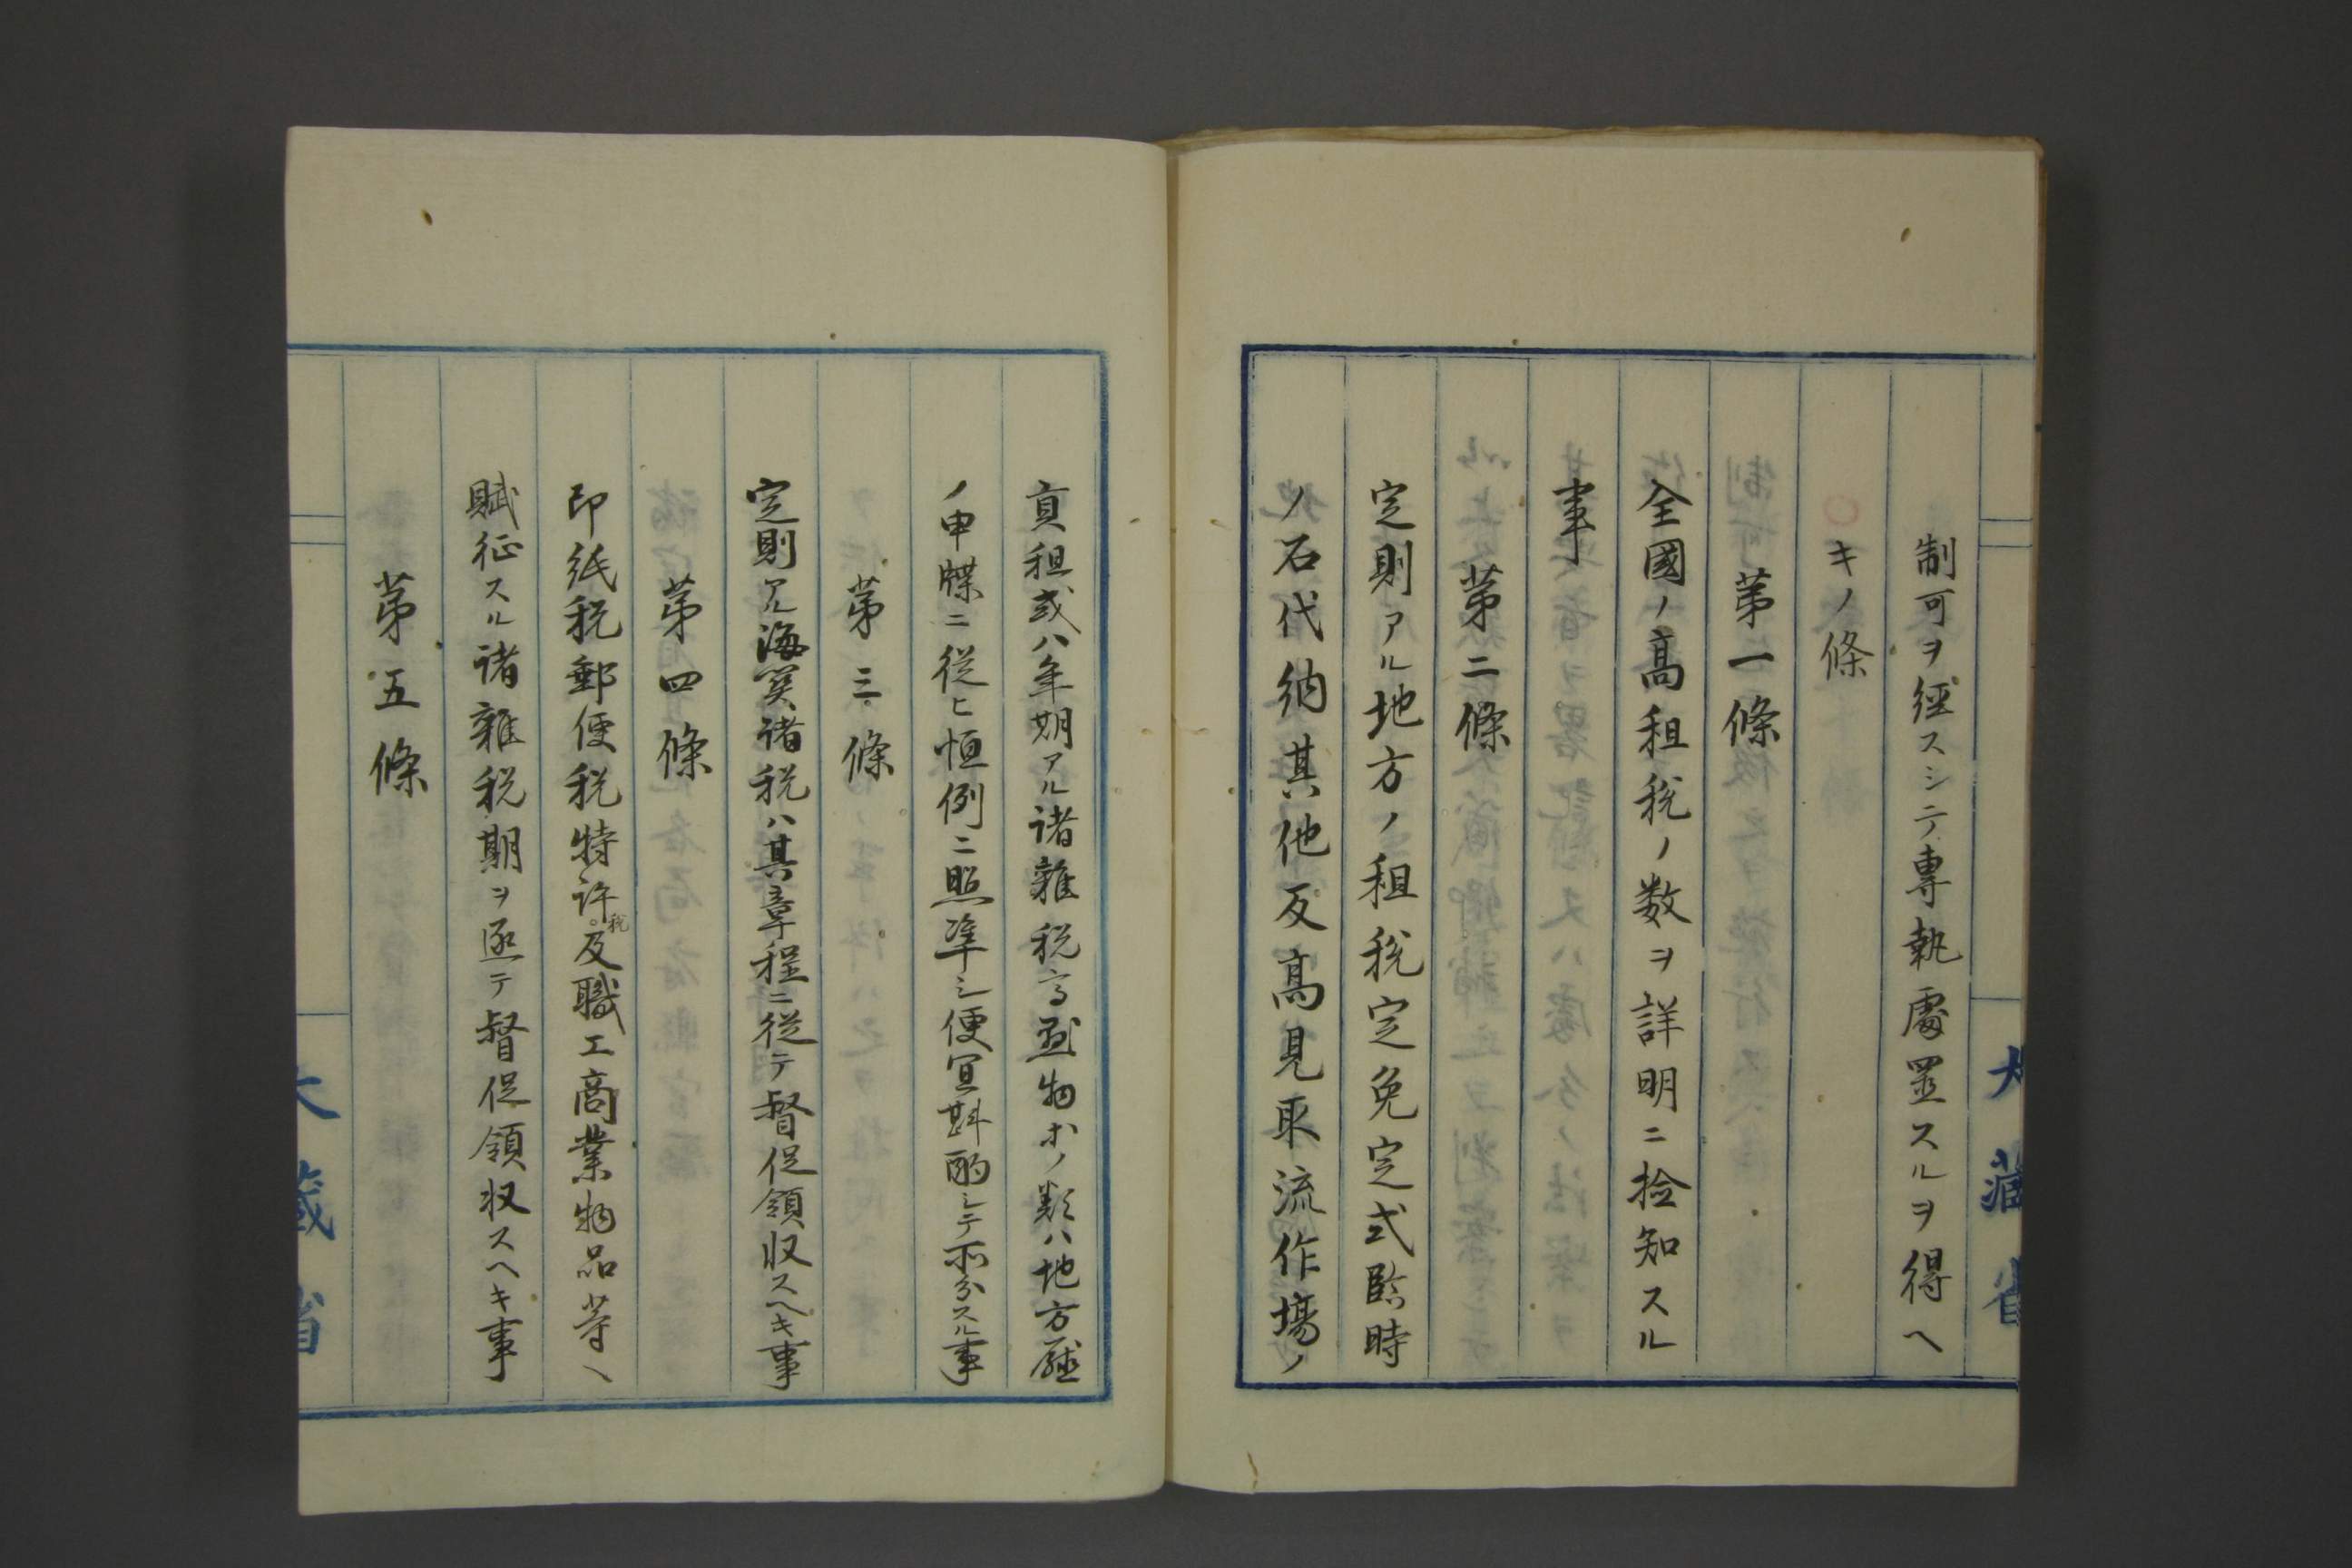 制可ヲ經スシテ專執處置スルヲ得ヘ
キノ條
第一條
全國ノ髙租税ノ数ヲ詳明ニ撿知スル
事
第二條
定則アル地方ノ租税定免定式臨時
ノ石代納其他及髙見取流作場ノ
貢租或ハ年期アル諸雜税高並物ホノ類ハ地方廳
ノ申牒ニ從ヒ恒例ニ照準シ便宜斟酌シテ処分スル事
第三條
定則アル海関諸税ハ其章程ニ從テ督促領収スヘキ事
第四條
印紙税郵便税特許税及職工商業物品等ヘ
賦征スル諸雜税期ヲ逐テ督促領収スヘキ事
第五條
大藏省
大藏省